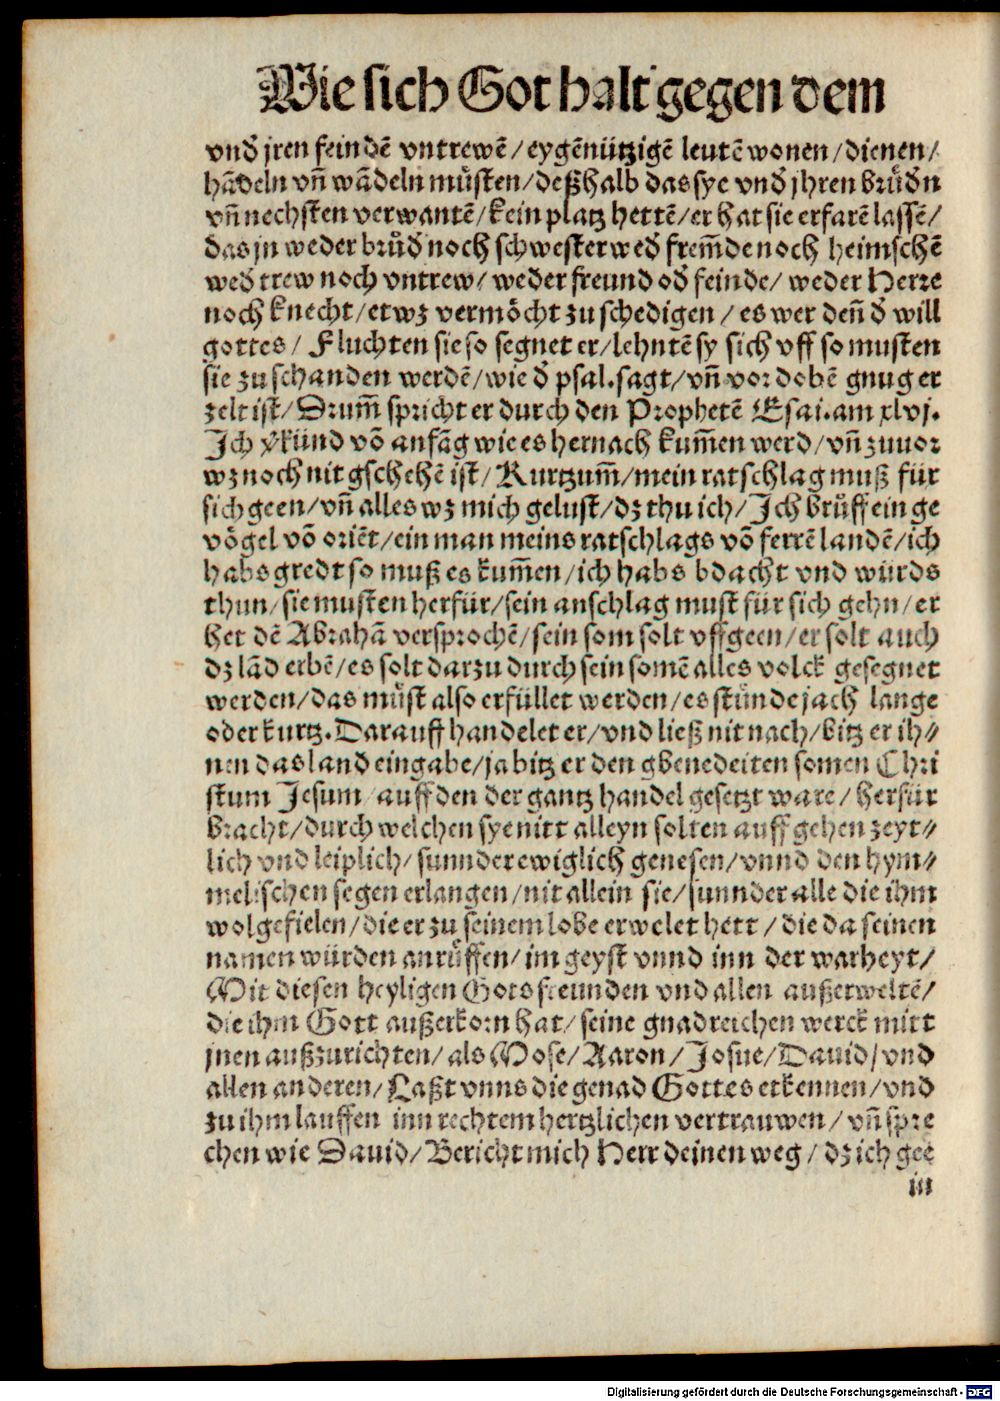 Wie sich Got halt gegen dem
vnd̕ jren feindẽ vntrewẽ / eygẽnützigẽ leutẽ wonen / dienen /
hãdeln vñ wãdeln muͤsten / deßhalb das sye vnd̕ jhren bruͤd̕n
vñ nechsten verwantẽ / kein platz hettẽ / er hat sie erfarẽ lassẽ /
das jn weder bruͤd̕ noch schwester wed̕ frem̃de noch heimschẽ
wed̕ trew noch vntrew / weder freund od̕ feinde / weder Herre
noch knecht / etwz vermoͤcht zu schedigen / es wer deñ d̕ will
gottes / Fluchten sie so segnet er / lehntẽ sy sich vff so musten
sie zu schanden werdẽ / wie d̕ psal. sagt / vñ vor dobẽ gnug er
zelt ist / Drum̃ spricht er durch den Prophetẽ Esai. am xlvj.
Ich v̕künd võ anfãg wie es hernach kum̃en werd / vñ zuuor
wz noch nit gschehẽ ist / Kurtzum̃ / mein ratschlag muß für
sich geen / vñ alles wz mich gelust / dz thu ich / Ich bruͤff ein ge
voͤgel võ oriẽt / ein man meins ratschlags võ ferrẽ landẽ / ich
habs gredt so muß es kum̃en / ich habs bdacht vnd würds
thun / sie musten herfür / sein anschlag must für sich gehn / er
het dẽ Abrahã versprochẽ / sein som solt vffgeen / er solt auch
dz lãd erbẽ / es solt darzu durch sein somẽ alles volck gesegnet
werden / das muͤst also erfüllet werden / es stünde jach lange
oder kurtz. Darauff handelet er / vnd ließ nit nach / bitz er ih⸗
nen das land eingabe / ja bitz er den gbenedeiten somen Chri
stum Jesum auff den der gantz handel gesetzt ware / herfür
bracht / durch welchen sye nitt alleyn solten auff gehen zeyt⸗
lich vnd leiplich / sunnder ewiglich genesen / vnnd den hym⸗
melischen segen erlangen / nit allein sie / sunnder alle die ihm
wolgefielen / die er zu seinem lobe erwelet hett / die da seinen
namen würden anruͤffen / im geyst vnnd inn der warheyt /
Mit diesen heyligen Gots freunden vnd allen außerweltẽ /
die ihm Gott außerkorn hat / seine gnadreichen werck mitt
jnen außzurichten / als Mose / Aaron / Josue / Dauid / vnd
allen anderen / Laßt vnns die genad Gottes erkennen / vnd
zu ihm lauffen inn rechtem hertzlichen vertrauwen / vñ spre
chen wie Dauid / Bericht mich Herr deinen weg / dz ich gee
in
Digitalisierung gefördert durch die Deutsche Forschungsgemeinschaft - DFG